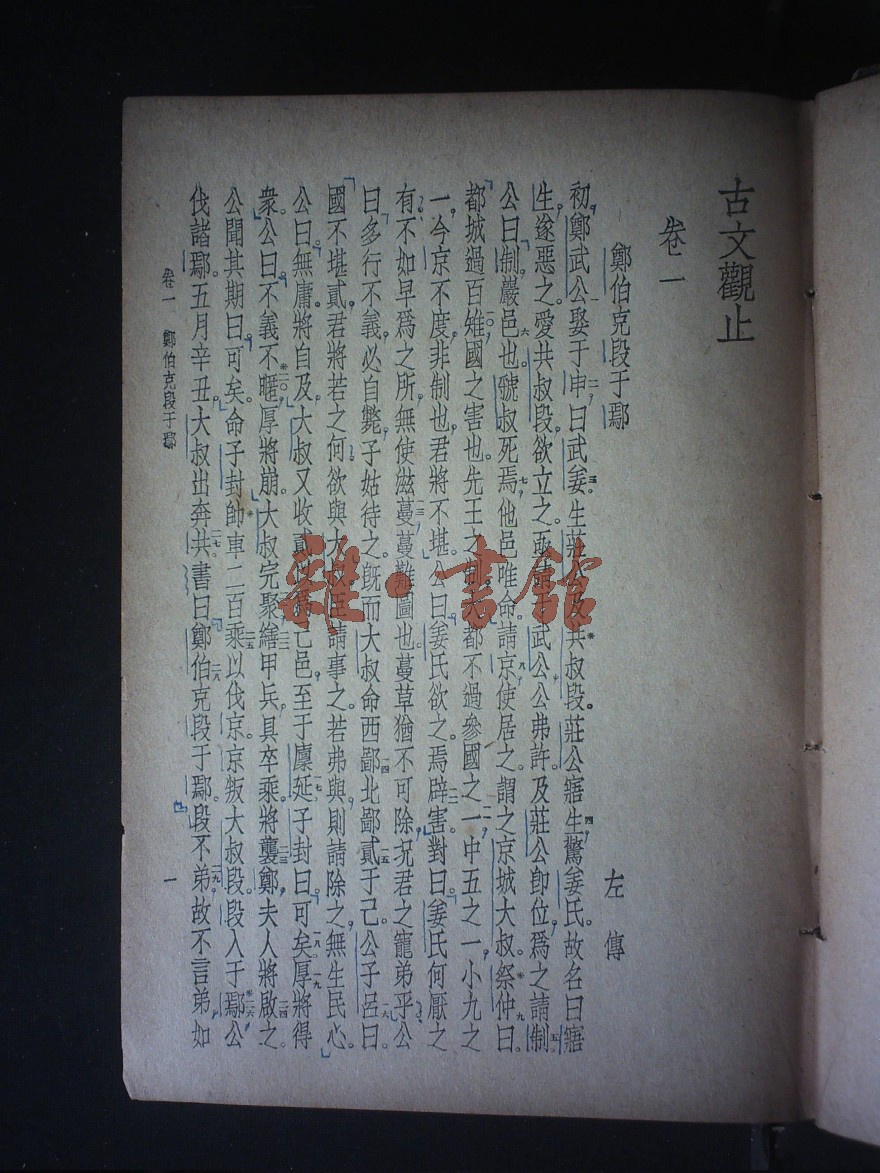 古文觀止
卷一
鄭伯克段于鄢
左傳
初鄭武公娶于申一曰武姜二生莊公及共叔段三莊公寤生驚姜氏四故名曰寤
生遂惡之愛共叔段欲立之亟請于武公公弗許及莊公卽位爲之請制五
公曰制巖邑也六虢叔死焉七他邑唯命請京八使居之謂之京城大叔祭仲曰九
都城過百雉一〇國之害也先王之制大都不過參國之一一一中五之一小九之
一今京不度非制也君將不堪公曰姜氏欲之焉辟害一二對曰姜氏何厭之
有不如早爲之所無使滋蔓一三蔓難圖也蔓草猶不可除況君之寵弟乎公
曰多行不義必自斃子姑待之旣而大叔命西鄙一四北鄙貳于己一五公子呂曰一六
國不堪貳君將若之何欲與大叔臣請事之若弗與則請除之無生民心
公曰無庸將自及大叔又收貳以爲己邑至于廩延一七子封曰可矣一八厚將得一九
衆公曰不義不暱二〇厚將崩大叔完聚二一繕甲兵二二具卒乘二三將襲鄭夫人將啟之二四
公聞其期曰可矣命子封帥車二百乘二五以伐京京叛大叔段段入于鄢二六公
伐諸鄢五月辛丑大叔出奔共二七書曰鄭伯克段于鄢二八段不弟二九故不言弟如
卷一 鄭伯克段于鄢
一
雜·書館